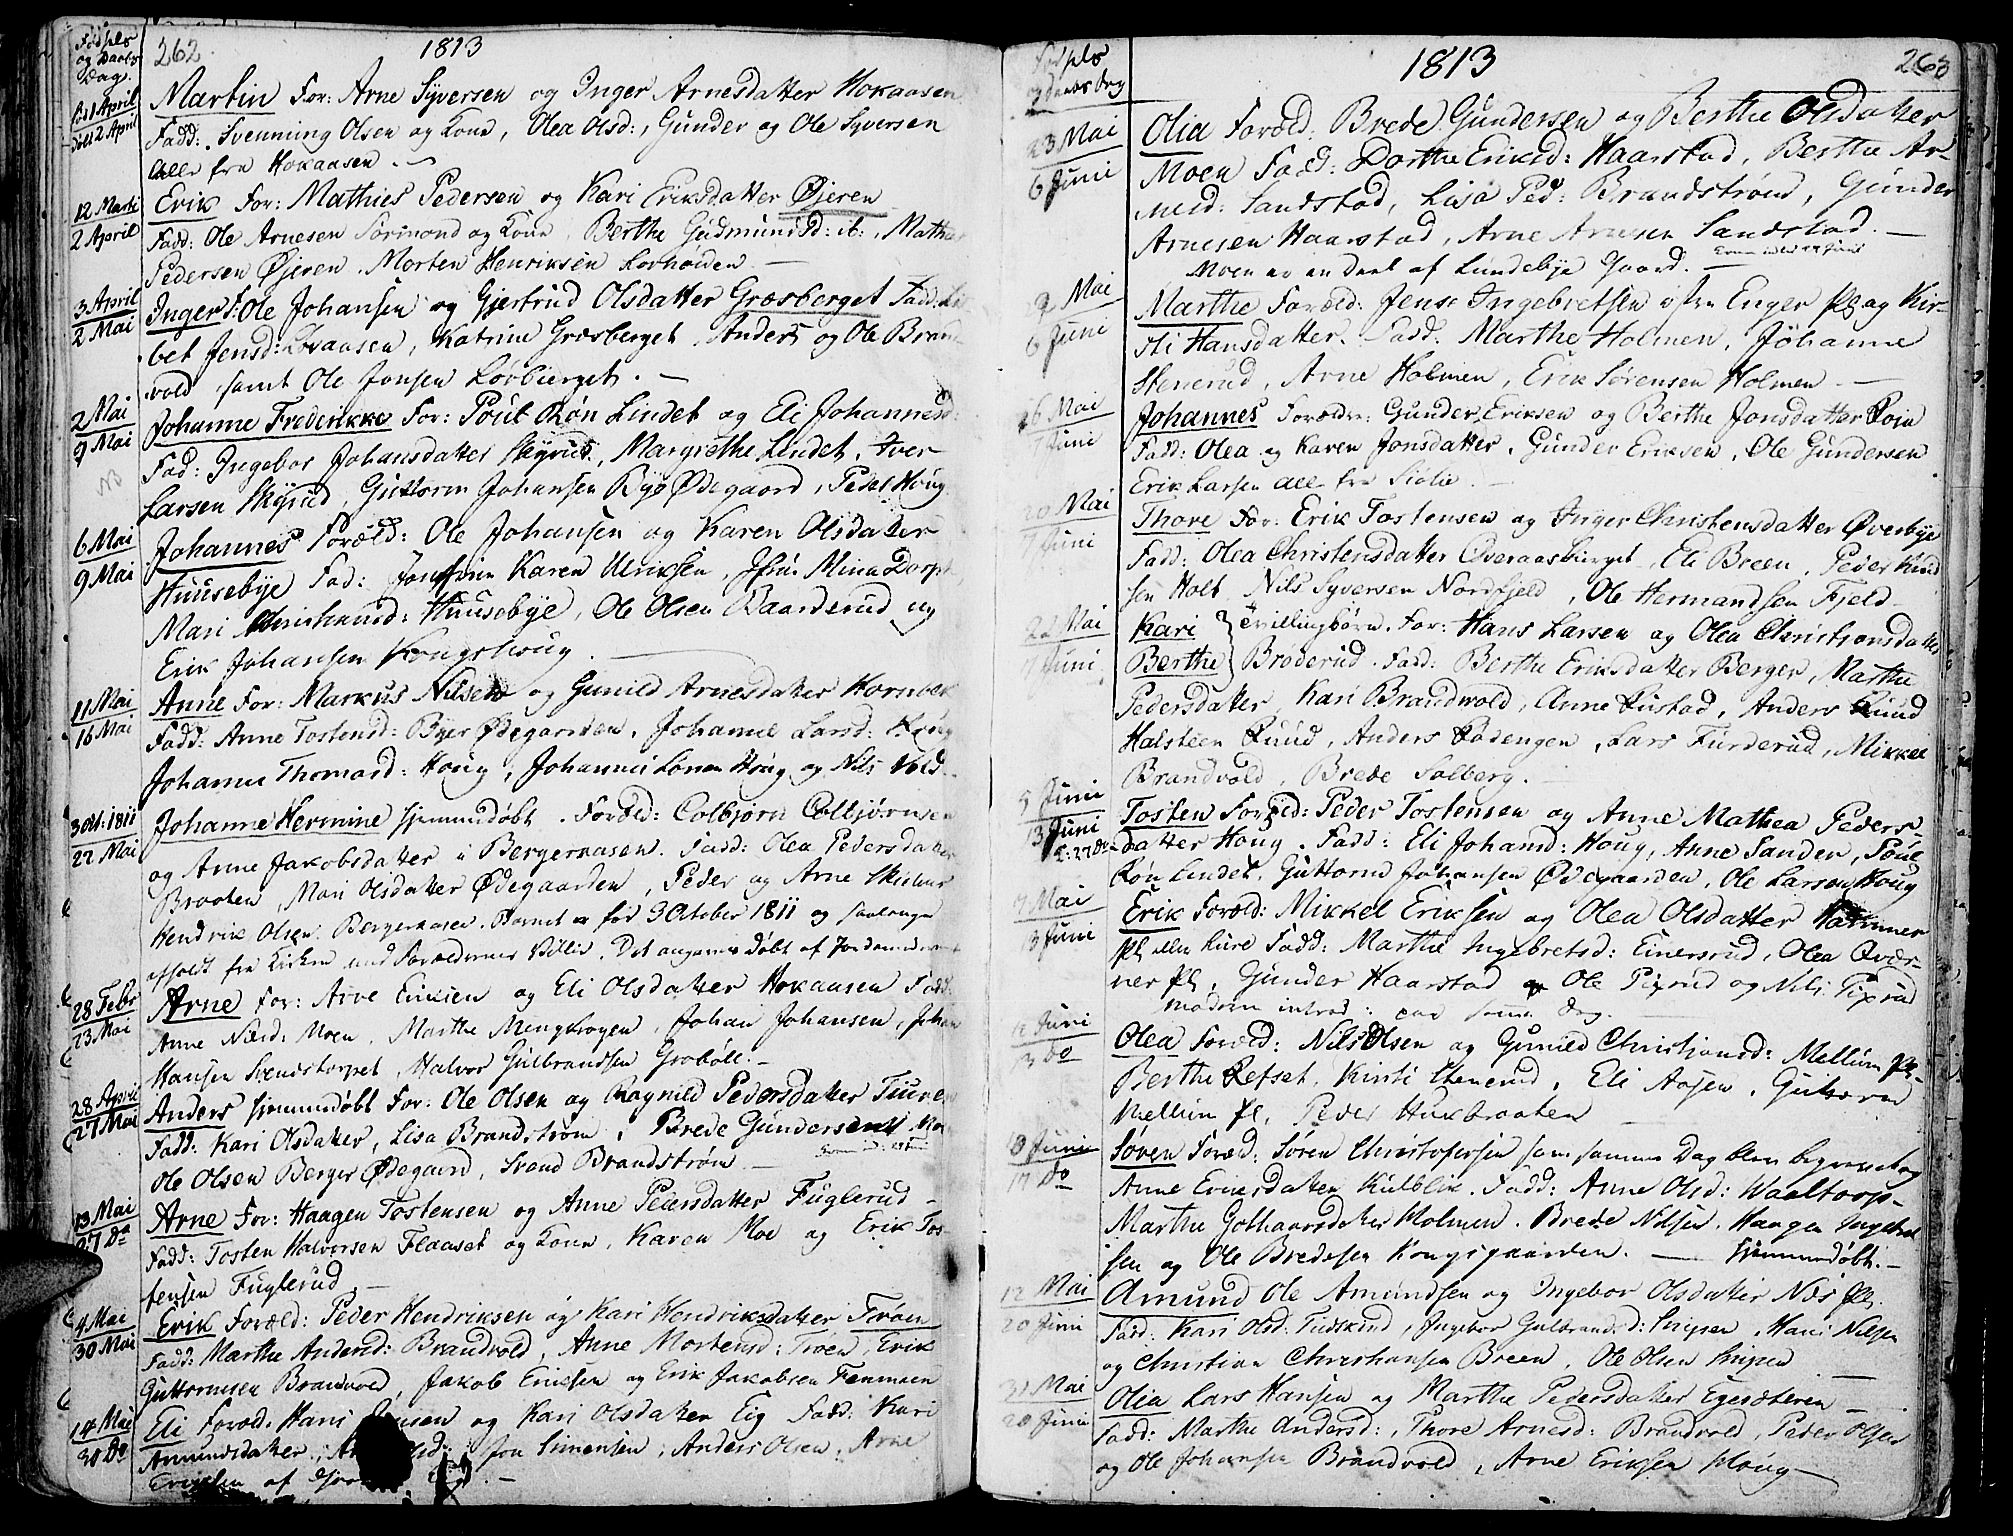 Fødsels
og Daabs
Dag.
262.
1813
fød 1 April
døbt 2 April
Martin For: Arne Syversen og Inger Arnesdatter Hokaasen
Fadd: Svenning Olsen og Kone, Olea Olsd:, Gunder og Ole Syversen
alle fra Hokaasen.
12 Marti
2 April
Erik For: Mathies Pedersen og Kari Eriksdatter Øjeren
Fadd: Ole Arnesen Sormond og Kone, Berthe Gudmundsd: ib:, Mathies
Pedersen Øjeren. Morten Henriksen
3 April
2 Mai
Inger F: Ole Johansen og Gjertrud Olsdatter Græsberget Fadd:
bet Jensd: Lovaasen, Katrine Græsberget, Anders og Ole Brand
vold samt Ole Jonsen Lovbierget.
2 Mai
9 Mai
NB
Johanne Frederikke For: Poul Røn Lindet og Eli Johannesd:
Fad: Ingebor Johansdatter Skyrud, Margrethe Lindet, Iver
Larsen Skyrud, Guttorm Johansen Bye Ødegaard, Peder Houg
6 Mai
9 Mai
Johannes Foræld: Ole Johansen og Karen Olsdatter
Huusebye Fad: Jomfrue Karen Ulriksen, Jfru: Mina Dorph
Mari Christiansd: Huusebye, Ole Olsen Baarderud og
Erik Johansen Kongshoug.
11 Mai
16 Mai
Anne For: Markus Nilsen og Gunild Arnesdatter Hornbek
Fadd: Anne Tostensd: Byer Ødegaarden, Johanne Larsd: Houg
Johanne Thomasd: Houg, Johannes Larsen Houg og Nils Vold.
3 Oct. 1811
22 Mai
Johanne Hermine hjemmedøbt. Foræld: Colbjørn Colbjørnsen
og Anne Jakobsdatter i Bergeraasen. Fadd: Olea Pedersdatter
Braaten, Mari Olsdatter Ødegaarden, Peder og Arne
Hendrik Olsen Bergeraasen. Barnet er før 3 October 1811 og saalænge
afholdt fra Kirken med Forældrenes Villie. Det angives døbt af Jordemoderen
28 Febr
23 Mai
Arne For: Arve Eriksen og Eli Olsdatter Hokaasen Fadd:
Anne Næsd: Moen, Marthe Mengkrogen, Johan Johansen, Johan
Hansen Svenstorpet, Halvor Gulbrandsen Grobøll.
28 April
27 Mai
Anders hjemmedøbt For: Ole Olsen og Ragnild Pedersdatter
Fadd: Kari Olsdatter, Lisa Brandstrøm, Brede Gundersen
Ole Olsen Berger Ødegaard, Svend Brandstrøm
13 Mai
27 Do
Arne For: Haagen Tostensen og Anne Pedersdatter Fuglerud
Fadd: Tosten Halvorsen Flaaset og Kone, Karen Moe og Erik Tos-
tensen Fuglerud
4 Mai
30 Mai
Erik Foræld: Peder Hendriksen og Kari Hendriksdatter Trøen
Fadd: Marthe Andersd: Brandvold, Anne Mortensd: Trøen, Erik
Guttormsen Brandvold, Jakob Eriksen og Erik Jakobsen
14 Mai
30 Do
Eli Foræld: Hans Jensen og Kari Olsdatter Eig Fadd: Kari
Amundsdatter, Jon Simensen, Anders Olsen, Arne
Eriksen af
Fødsels
og Daabs Dag
1813
263
23 Mai
6 Juni
Olia Foræld: Brede Gundersen og Berthe Olsdatter
Moen Fadd: Dorthe Eriksd: Haarstad, Berthe Ar-
nesd: Sandstad, Lisa Ped: Brandstrøm, Gunder
Arnesen Haarstad, Arne Arnesen Sandstad.
Moen er en Deel af Lundebye Gaard.
9 Mai
6 Juni
Marthe Foræld: Jens Ingebretsen østre Enger Pl og Kir-
sti Hansdatter. Fadd: Marthe Holmen, Johanne
Stenerud, Arne Holmen, Erik Sørensen Holmen
26 Mai
7 Juni
Johannes Forældre: Gunder Eriksen og Berthe Jonsdatter
Fadd: Olea og Karen Jonsdatter, Gunder Eriksen, Ole Gundersen
Erik Larsen alle fra Siolie
20 Mai
7 Juni
Thore For: Erik Tostensen og Inger Christensdatter Øverbye
Fadd: Olea Christensdatter Overaasberget, Eli Breen, Peder Knud
sen Holt, Nils Syversen Nordfjeld, Ole Hermandsen Fjeld
22 Mai
7 Juni
Kari } Tvillingbørn. For: Hans Larsen og Olea Christjansdatter
Berthe } Broderud. Fadd: Berthe Eriksdatter Berger, Marthe
Pedersdatter, Kari Brandvold, Anne Rustad, Anders Ruud
Halsteen Ruud, Anders Rødengen, Lars Furderud, Mikkel
Brandvold, Brede Solberg.
5 Juni
13 Juni
Tosten Foræld: Peder Tostensen og Anne Mathea Peders-
datter Houg. Fadd: Eli Johansd: Houg, Anne Sanden, Poul
Røn Lindet, Guttorm Johansen Ødegaarden, Ole Larsen Houg
9 Mai
13 Juni
Erik Foræld: Mikkel Eriksen og Olea Olsdatter
Pl Fadd: Marthe Ingebretsd: Einersrud, Olea Qvær-
ner Pl, Gunder Haarstad Ole Pixrud og Nils Pixrud
Moderen introd: samme Dag.
Juni
13 Do
Olea Foræld: Nils Olsen og Gunild Christjansd: Mellum Pl.
Berthe Refset, Kirsti Stenerud, Eli Aasen, Guttorm
Mellum Pl, Peder
8 Juni
17 Do
Søren Foræld: Søren Christofersen som samme Dag blev begravet og
Anne Evensdatter Kulblik. Fadd: Anne Olsd: Waaltorp
Marthe Gothaarsdatter Holmen. Brede Nilsen, Haagen Ingebret
sen og Ole Bredesen Kongsgaarden. — hjemmedøbt.
12 Mai
20 Juni
Amund Ole Amundsen og Ingebor Olsdatter Næs Pl.
Fadd: Kari Olsd: Tudskind, Ingebor Gulbrandsd: Snipen, Hans Nilsen
og Christian Christiansen Breen, Ole Olsen Snipen
31 Mai
20 Juni
Olia Lars Hansen og Marthe Pedersdatter Egesæteren
Fadd: Marthe Andersd:, Thore Arnesd: Brandvold, Peder Olsen
og Ole Johansen Brandvold, Arne Eriksen Houg